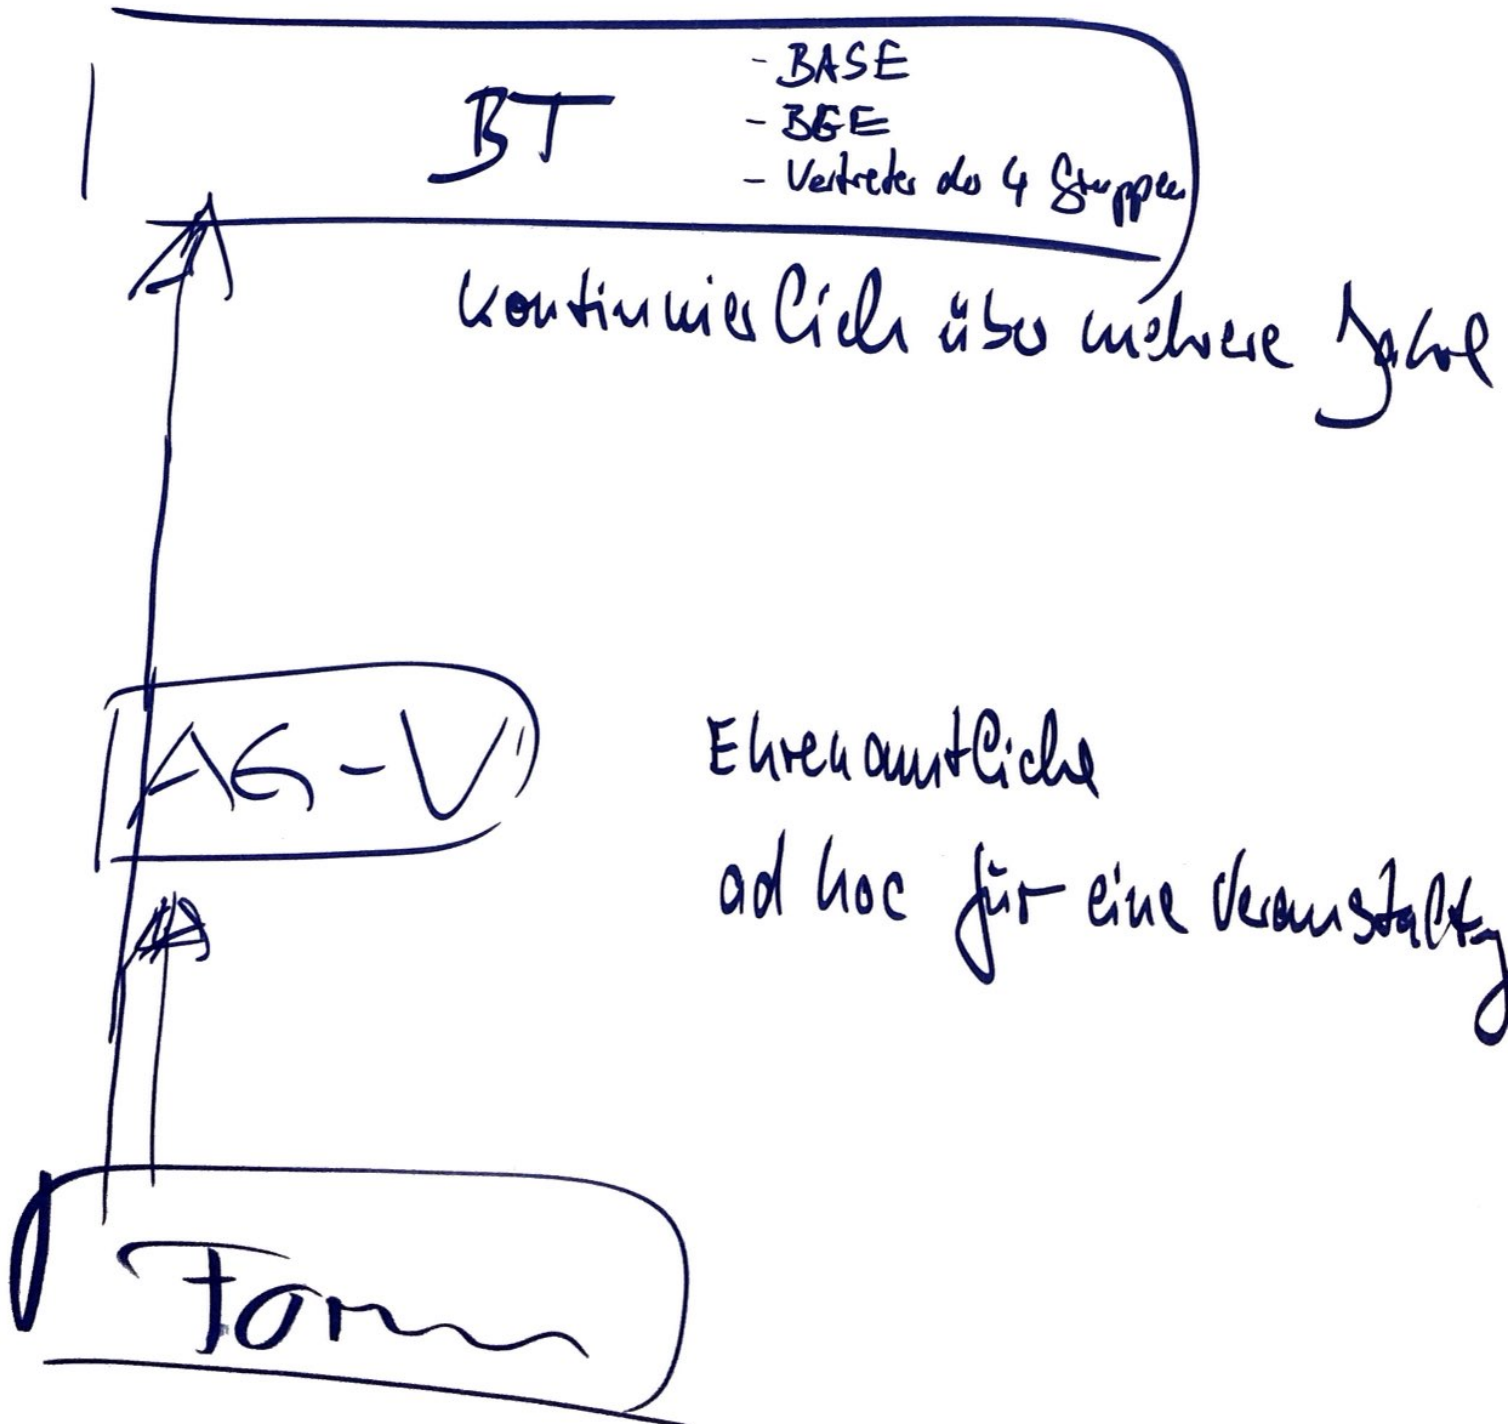 BT
- BASE
- BGE
- Vertreter der 4 Gruppen
kontinuierlich über mehrere Jahre
AG-V
Ehrenamtliche
ad hoc für eine Veranstaltung
Forum